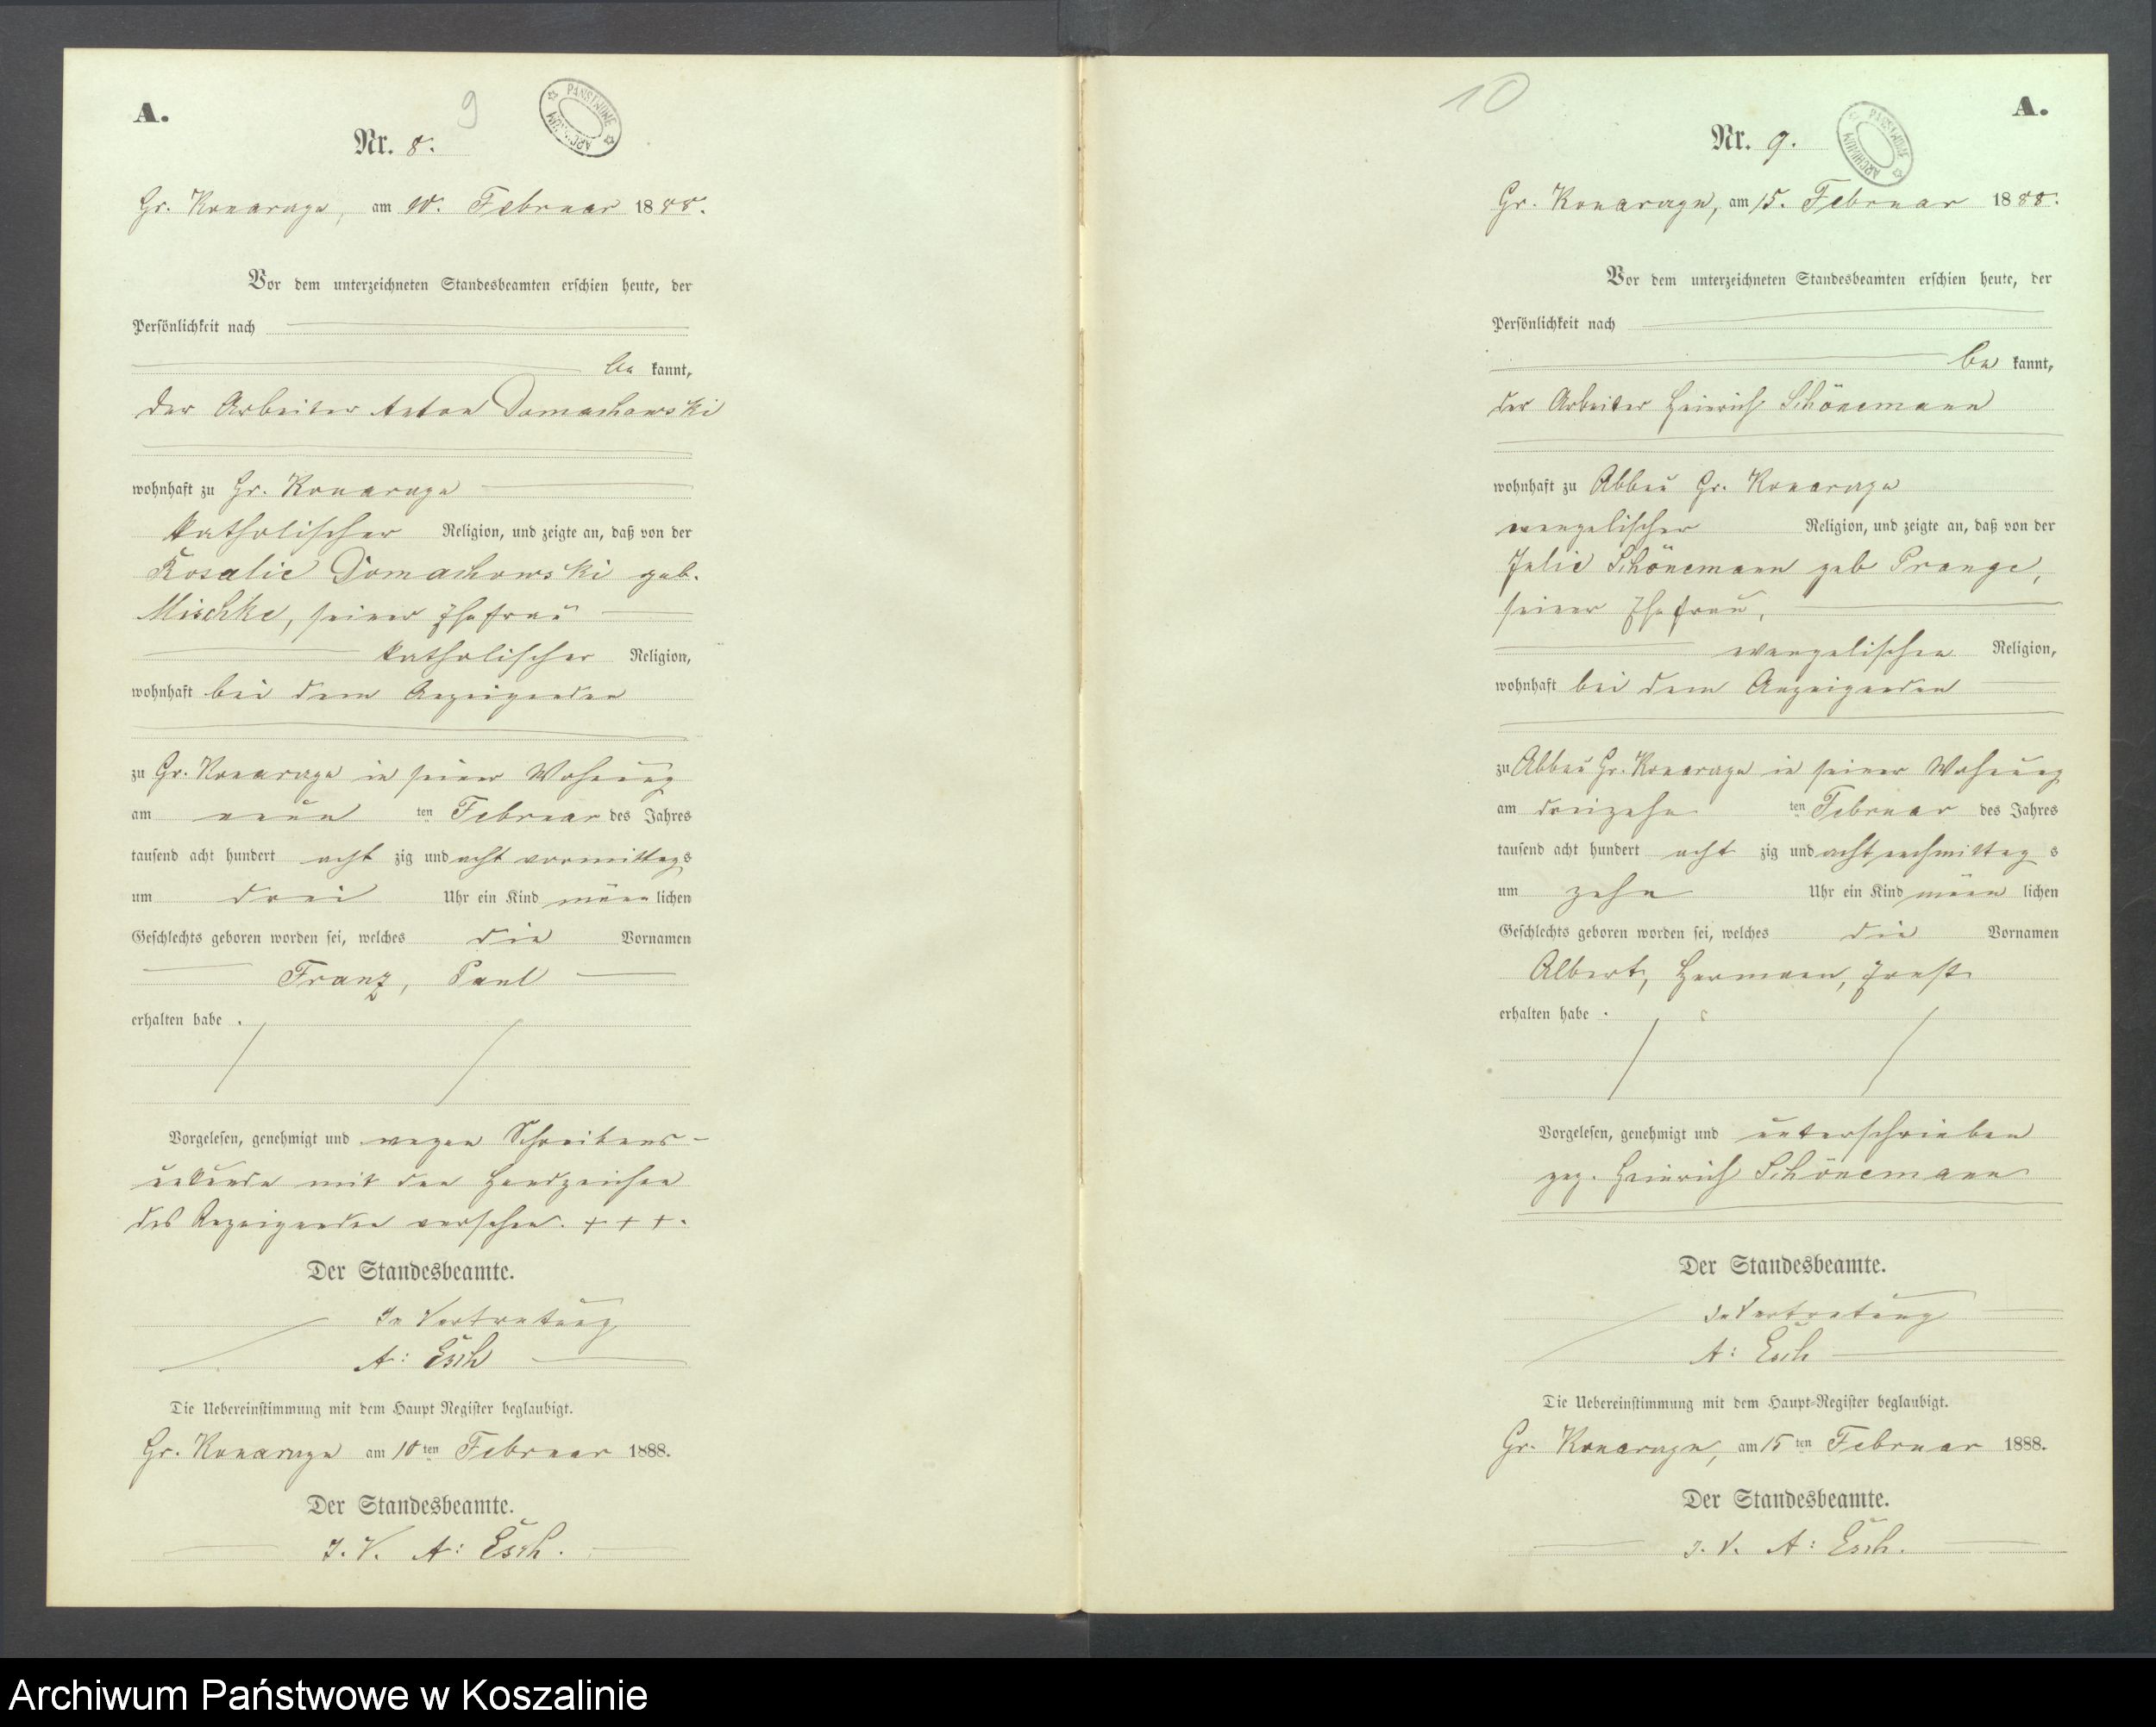 A.
9
ARCHIWUM PAŃSTWOWE
Nr. 8.
Gr. Konarzyn, am 10. Februar 1888.
Vor dem unterzeichneten Standesbeamten erschien heute, der
Persönlichkeit nach
be kannt,
der Arbeiter Anton Domachowski
wohnhaft zu Gr. Konarzyn
katholischer Religion, und zeigte an, daß von der
Rosalie Domachowski geb.
Mischke, seiner Ehefrau
katholischer Religion,
wohnhaft bei dem Anzeigenden
zu Gr. Konarzyn in seiner Wohnung
am neun ten Februar des Jahres
tausend acht hundert acht zig und acht vormittags
um drei Uhr ein Kind männ lichen
Geschlechts geboren worden sei, welches die Vornamen
Franz, Paul
erhalten habe.
Vorgelesen, genehmigt und wegen Schreibens-
unkunde mit den Handzeichen
des Anzeigenden versehen. + + +.
Der Standesbeamte.
In Vertretung
A: Esch
Die Uebereinstimmung mit dem Haupt Register beglaubigt.
Gr. Konarzyn am 10 ten Februar 1888.
Der Standesbeamte.
I. V. A: Esch.
10
A.
ARCHIWUM PAŃSTWOWE
Nr. 9.
Gr. Konarzyn, am 15. Februar 1888.
Vor dem unterzeichneten Standesbeamten erschien heute, der
Persönlichkeit nach
be kannt,
der Arbeiter Heinrich Schönemann
wohnhaft zu Abbau Gr. Konarzyn
evangelischer Religion, und zeigte an, daß von der
Julie Schönemann geb Prange,
seiner Ehefrau,
evangelischen Religion,
wohnhaft bei dem Anzeigenden
zu Abbau Gr. Konarzyn in seiner Wohnung
am dreizehn ten Februar des Jahres
tausend acht hundert acht zig und acht nachmittag s
um zehn Uhr ein Kind männ lichen
Geschlechts geboren worden sei, welches die Vornamen
Albert, Hermann, Ernst
erhalten habe.
Vorgelesen, genehmigt und unterschrieben
gez. Heinrich Schönemann
Der Standesbeamte.
In Vertretung
A: Esch
Die Uebereinstimmung mit dem Haupt-Register beglaubigt.
Gr. Konarzyn, am 15 ten Februar 1888.
Der Standesbeamte.
I. V. A: Esch.
Archiwum Państwowe w Koszalinie